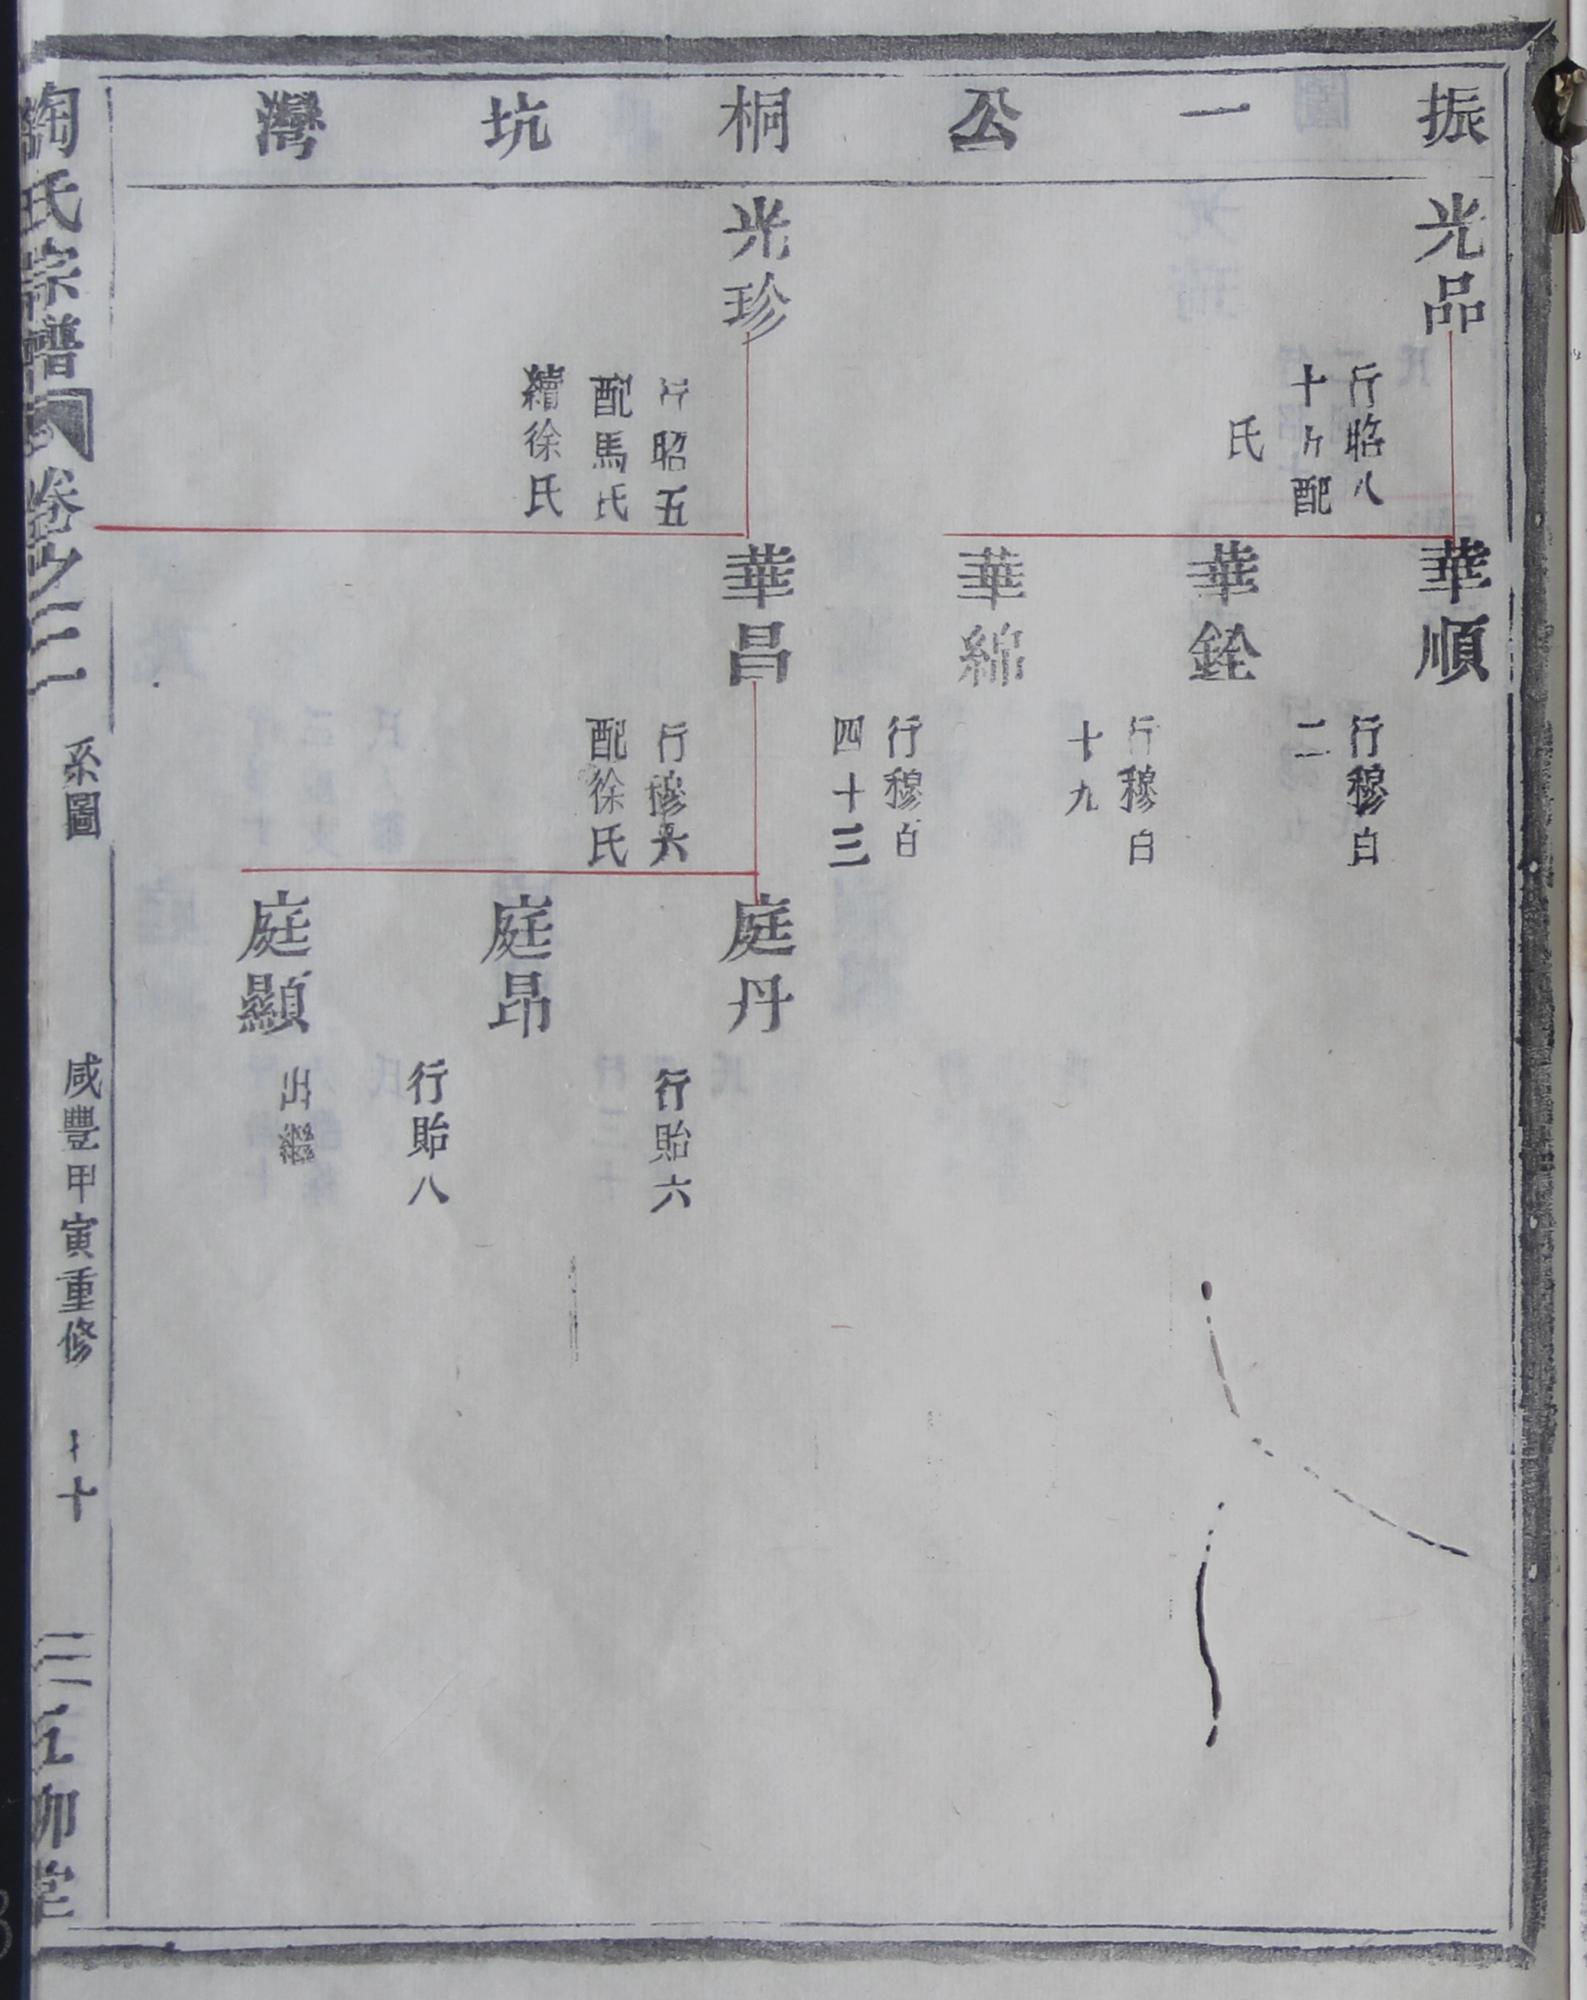 振一公桐坑灣
光品
行昭八
十九配
氏
光珍
行昭五
配馬氏
續徐氏
華順
行穆百
二
華銓
行穆百
十九
華綿
行穆百
四十三
華昌
行穆六
配徐氏
庭丹
行貽六
庭昂
行貽八
庭顯
出繼
陶氏宗譜
卷之三
系圖
咸豐甲寅重修
十
五柳堂